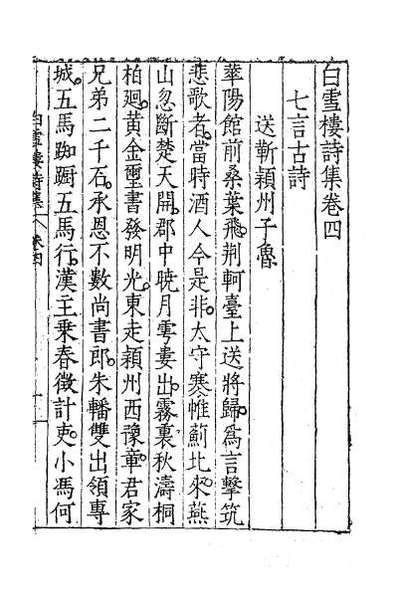 白雪樓詩集卷四
七言古詩
送靳穎州子魯
華陽館前桑葉飛。荆軻臺上送將歸。爲言擊筑
悲歌者。當時酒人今是非。太守褰帷薊北來。燕
山忽斷楚天開。郡中曉月雩婁出。霧裏秋濤桐
柏廻。黃金璽書發明光。東走穎州西豫章。君家
兄弟二千石。承恩不數尚書郎。朱轓雙出領專
城。五馬踟蹰五馬行。漢主乗春徵計吏。小馮何
白雪樓詩集 卷四